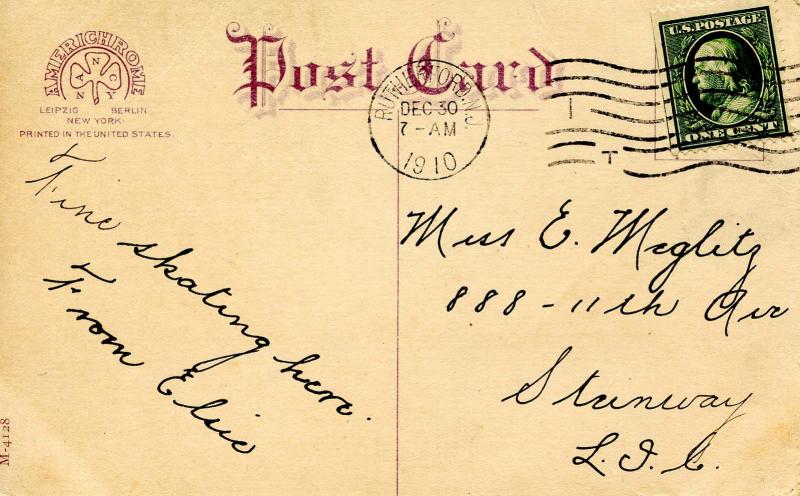 AMERICHROME
ANANCY
LEIPZIG BERLIN
NEW YORK
PRINTED IN THE UNITED STATES.
Post Card
RUTHERFORD, N.J.
DEC 30
7-AM
1910
U.S. POSTAGE
ONE CENT
Fine skating here.
From Elsie
Miss E. Meglitz
888-11th Av
Steinway
L.I.C.
M-4128